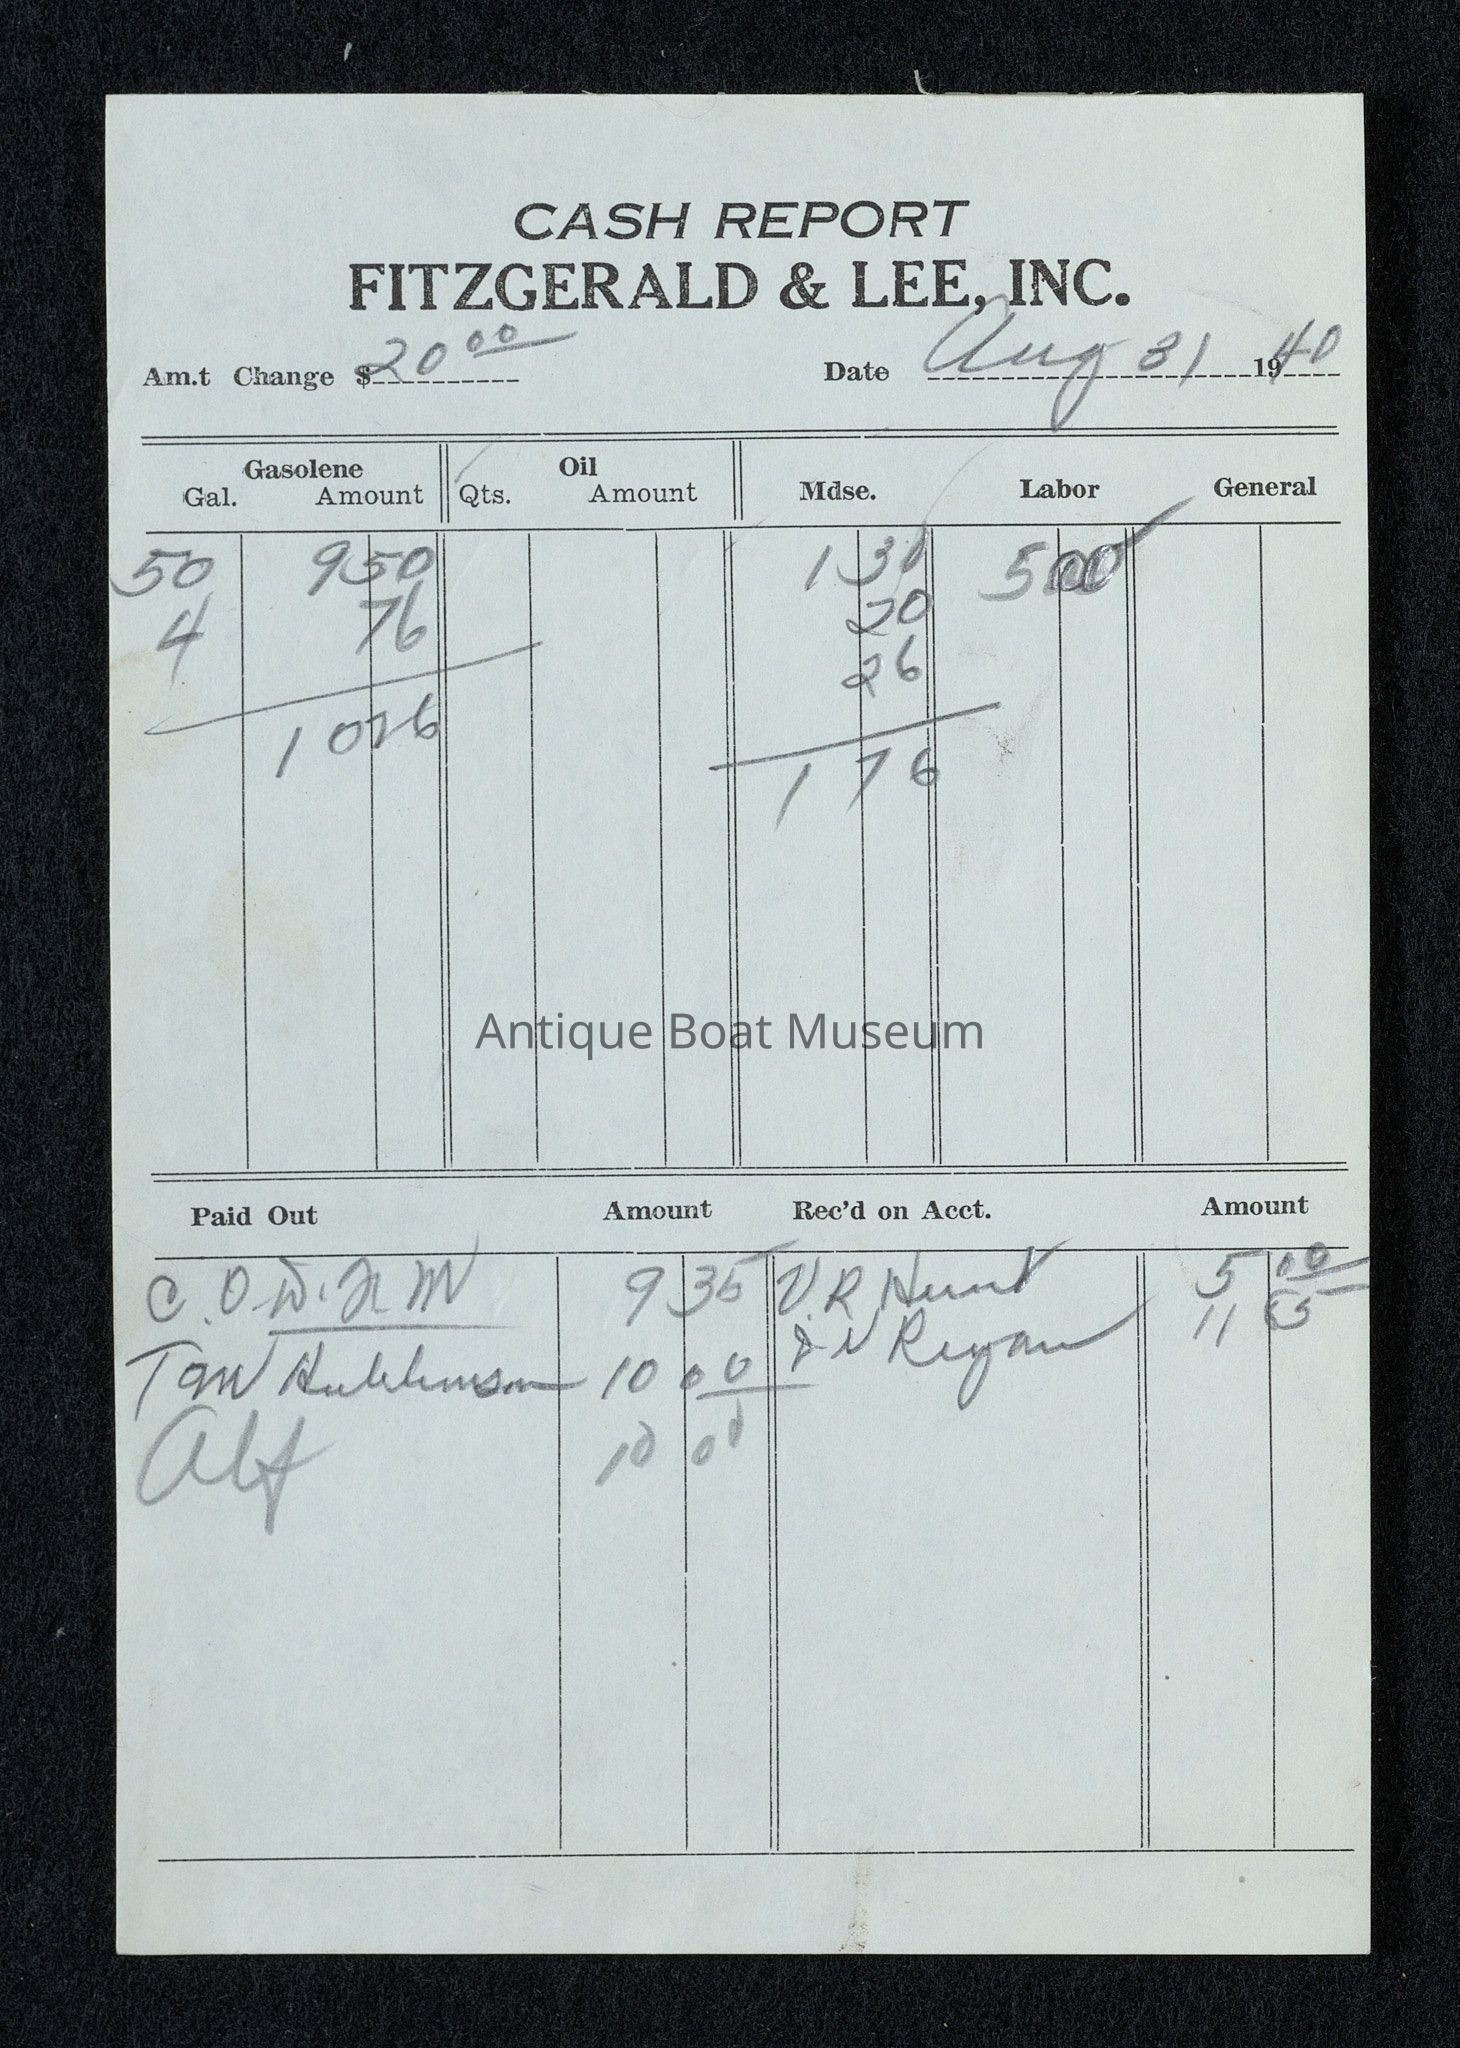 CASH REPORT
FITZGERALD & LEE, INC.
Am.t Change $ 20 00 Date Aug 31 1940
Gasolene Oil
Gal. Amount Qts. Amount Mdse. Labor General
50 9 50 1 30 5 00
4 76 20
26
10 26
1 76
Antique Boat Museum
Paid Out Amount Rec'd on Acct. Amount
C.O.D. 9 35 V.R. Hunt 5 00
Tom Hutchinson 10 00 Regan 11 65
Alf 10 00